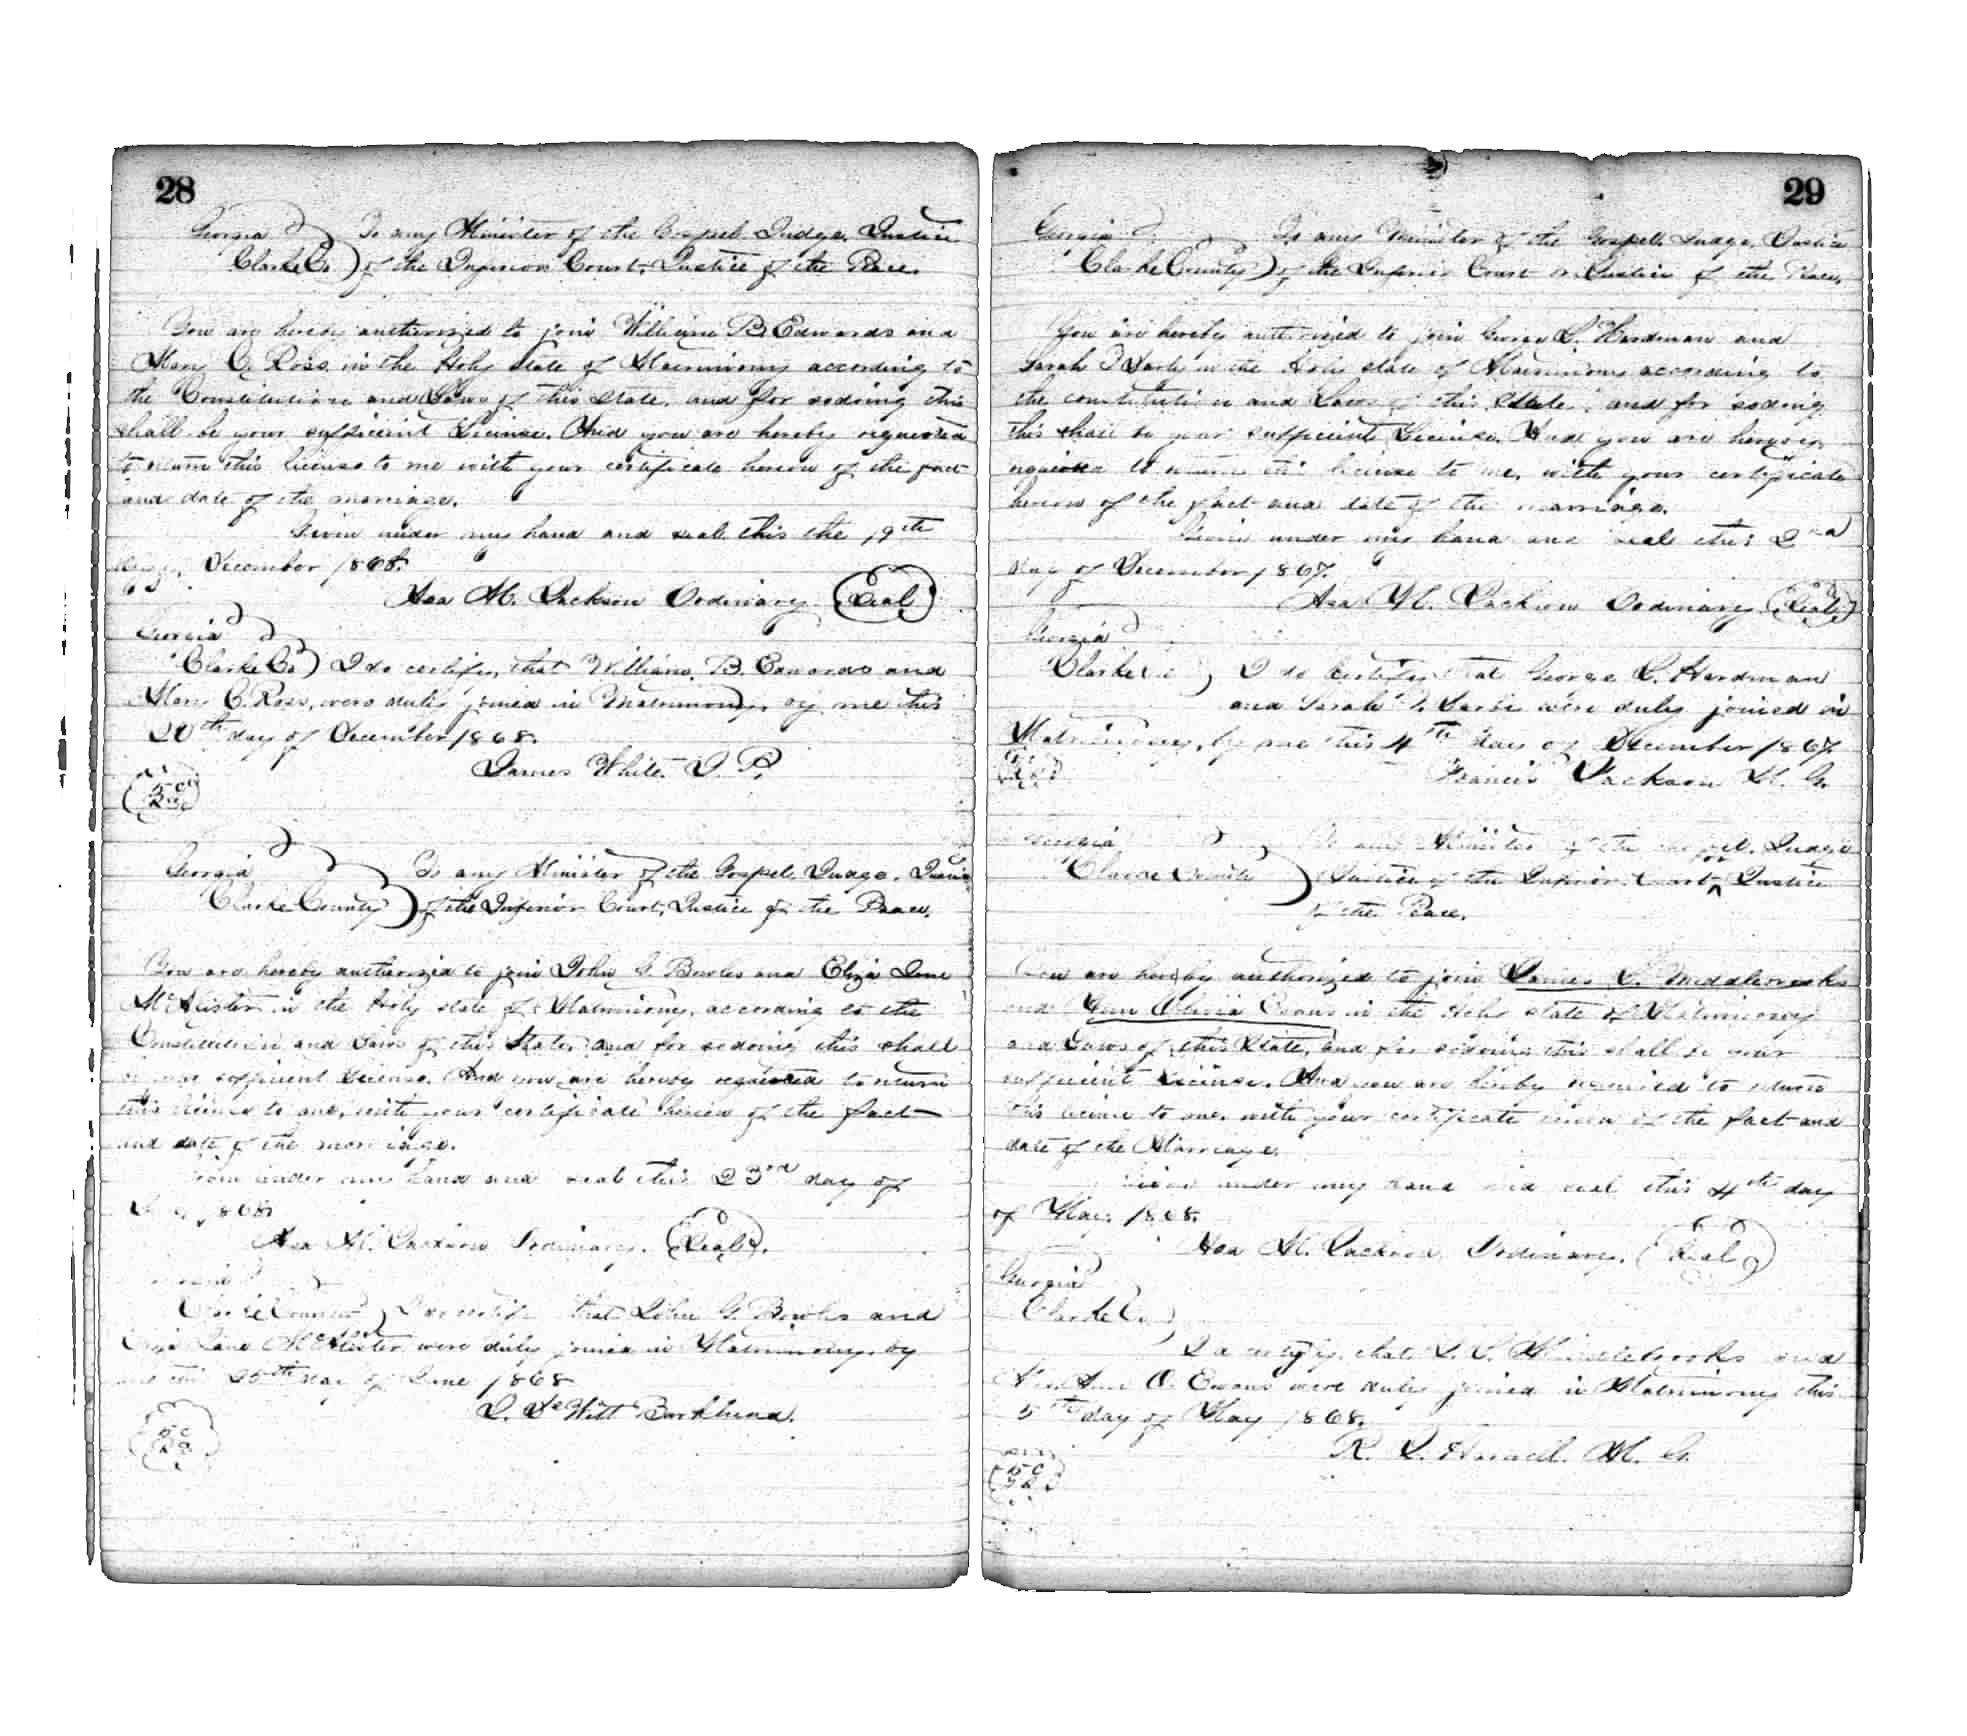 28
Georgia To any Minister of the Gospel, Judge, Justice
Clarke Co of the Inferior Court, Justice of the Peace.
You are hereby authorized to join William B. Edwards and
Mary C. Ross, in the Holy state of Matrimony according to
the Constitution and Laws of this State, and for sodoing this
shall be your sufficient License. And you are hereby required
to return this license to me with your certificate hereon of the fact
and date of the marriage.
Given under my hand and seal this the 19th
December 1868.
Asa M. Jackson Ordinary Seal
Georgia
Clarke Co I do certify, that William B. Edwards and
Mary C. Ross, were duly joined in Matrimony, by me this
20th day of December 1868.
James White. J. P.
Georgia To any Minister of the Gospel, Judge, Justice
Clarke County of the Inferior Court, Justice of the Peace.
You are hereby authorized to join John G. Bowles and Eliza Jane
McAlister in the Holy state of Matrimony, according to the
Constitution and Laws of this State, and for sodoing this shall
sufficient License. And you are hereby required to return
this license to me, with your certificate hereon of the fact
and date of the marriage.
under my hand and seal this 23rd day of
1868.
Asa M. Jackson Ordinary. Seal.
Clarke County I do certify that John G. Bowles and
Jane McAlister were duly joined in Matrimony by
25th day of June 1868
DeWitt Burkhead.
29
Georgia To any Minister of the Gospel, Judge, Justice
Clarke County of the Inferior Court or Justice of the Peace.
You are hereby authorized to join George L. Hardman and
Sarah in the Holy state of Matrimony according to
the constitution and Laws of this State, and for sodoing
this shall be your sufficient License. And you are hereby
required to return this license to me, with your certificate
hereon of the fact and date of the marriage.
Given under my hand and seal this 2nd
day of December 1867.
Asa M. Jackson Ordinary Seal
Georgia
Clarke Co I do certify that George L. Hardman
and Sarah were duly joined in
Matrimony, by me this 4th day of December 1867
Francis Jackson M. G.
Georgia To any Minister of the Gospel, Judge
Clarke County Justice of the Inferior Court or Justice
of the Peace.
You are hereby authorized to join James C. Middlebrooks
and Ann Olivia Evans in the Holy state of Matrimony
and Laws of this State, and for sodoing this shall be your
sufficient License. And you are hereby required to return
this license to me, with your certificate hereon of the fact and
date of the Marriage.
Given under my hand and seal this 4th day
of May 1868.
Asa M. Jackson Ordinary. Seal
Georgia
Clarke Co.
I certify that Middlebrooks and
Ann O. Evans were duly joined in Matrimony this
5th day of May 1868.
M. G.